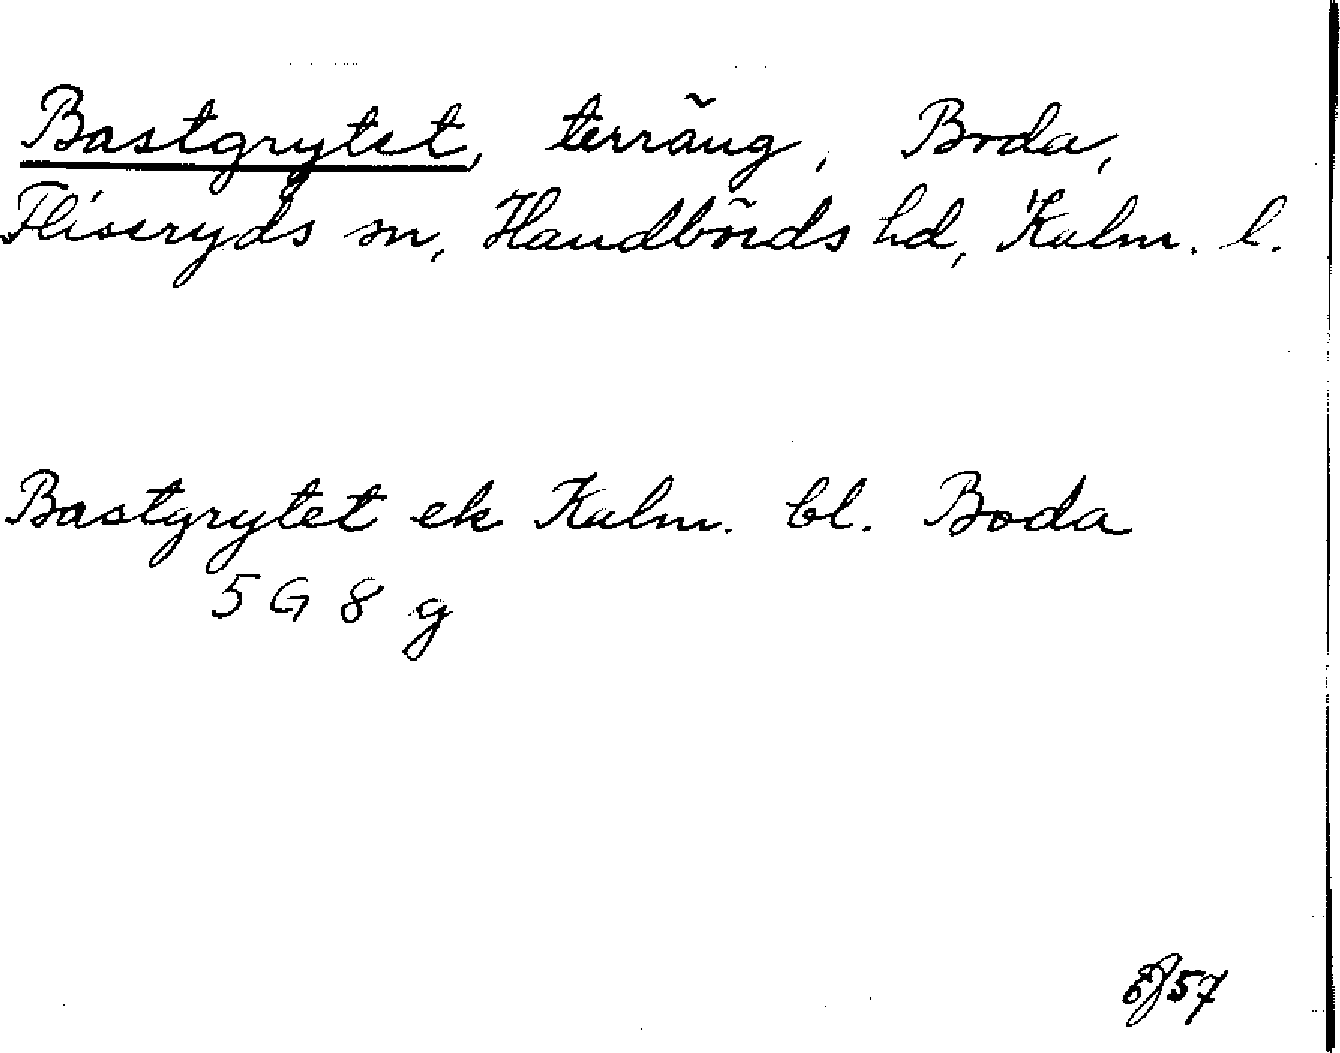 Bastgrytet, terräng, Boda,
Fliseryds sn, Handbörds hd, Kalm. l.
Bastgrytet ek Kalm. bl. Boda
5 G 8 g
57